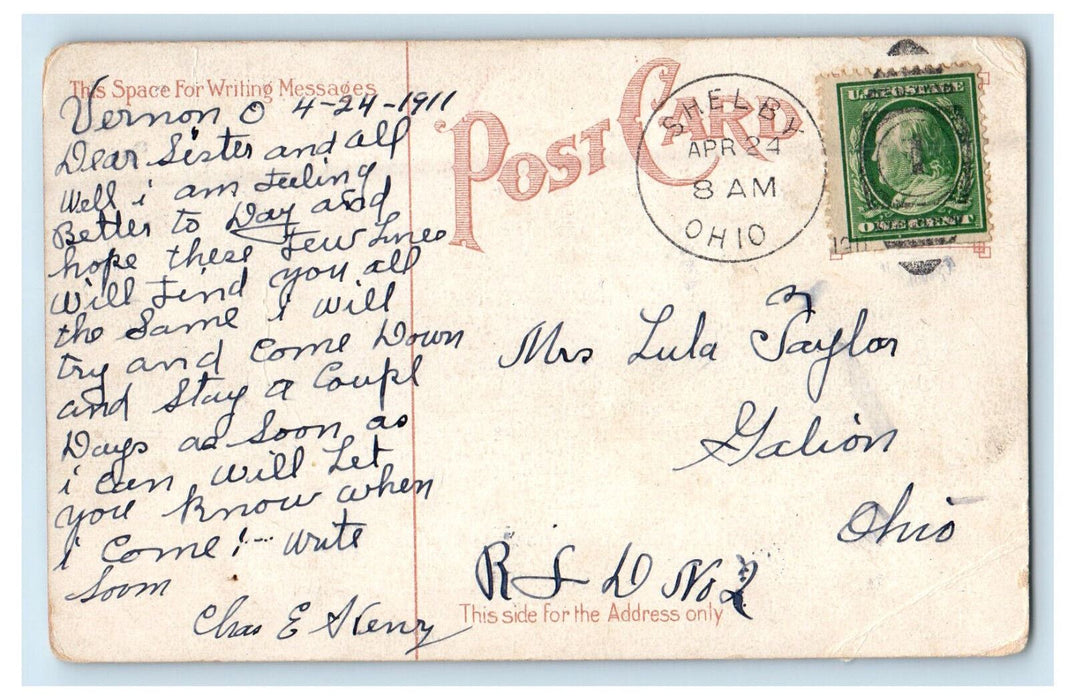 This Space For Writing Messages
Vernon O 4-24-1911
Dear Sister and all
Well i am feeling
Better to Day and
hope these few Lines
will find you all
the Same i will
try and Come Down
and Stay a Coupl
Days as Soon as
i can will Let
you Know when
i Come! write
Soon
Chas E
POST CARD
SHELBY
APR 24
8 AM
OHIO
U.S. POSTAGE
1
ONE CENT
Mrs Lula Taylor
Galion
Ohio
R F D No 2
This side for the Address only